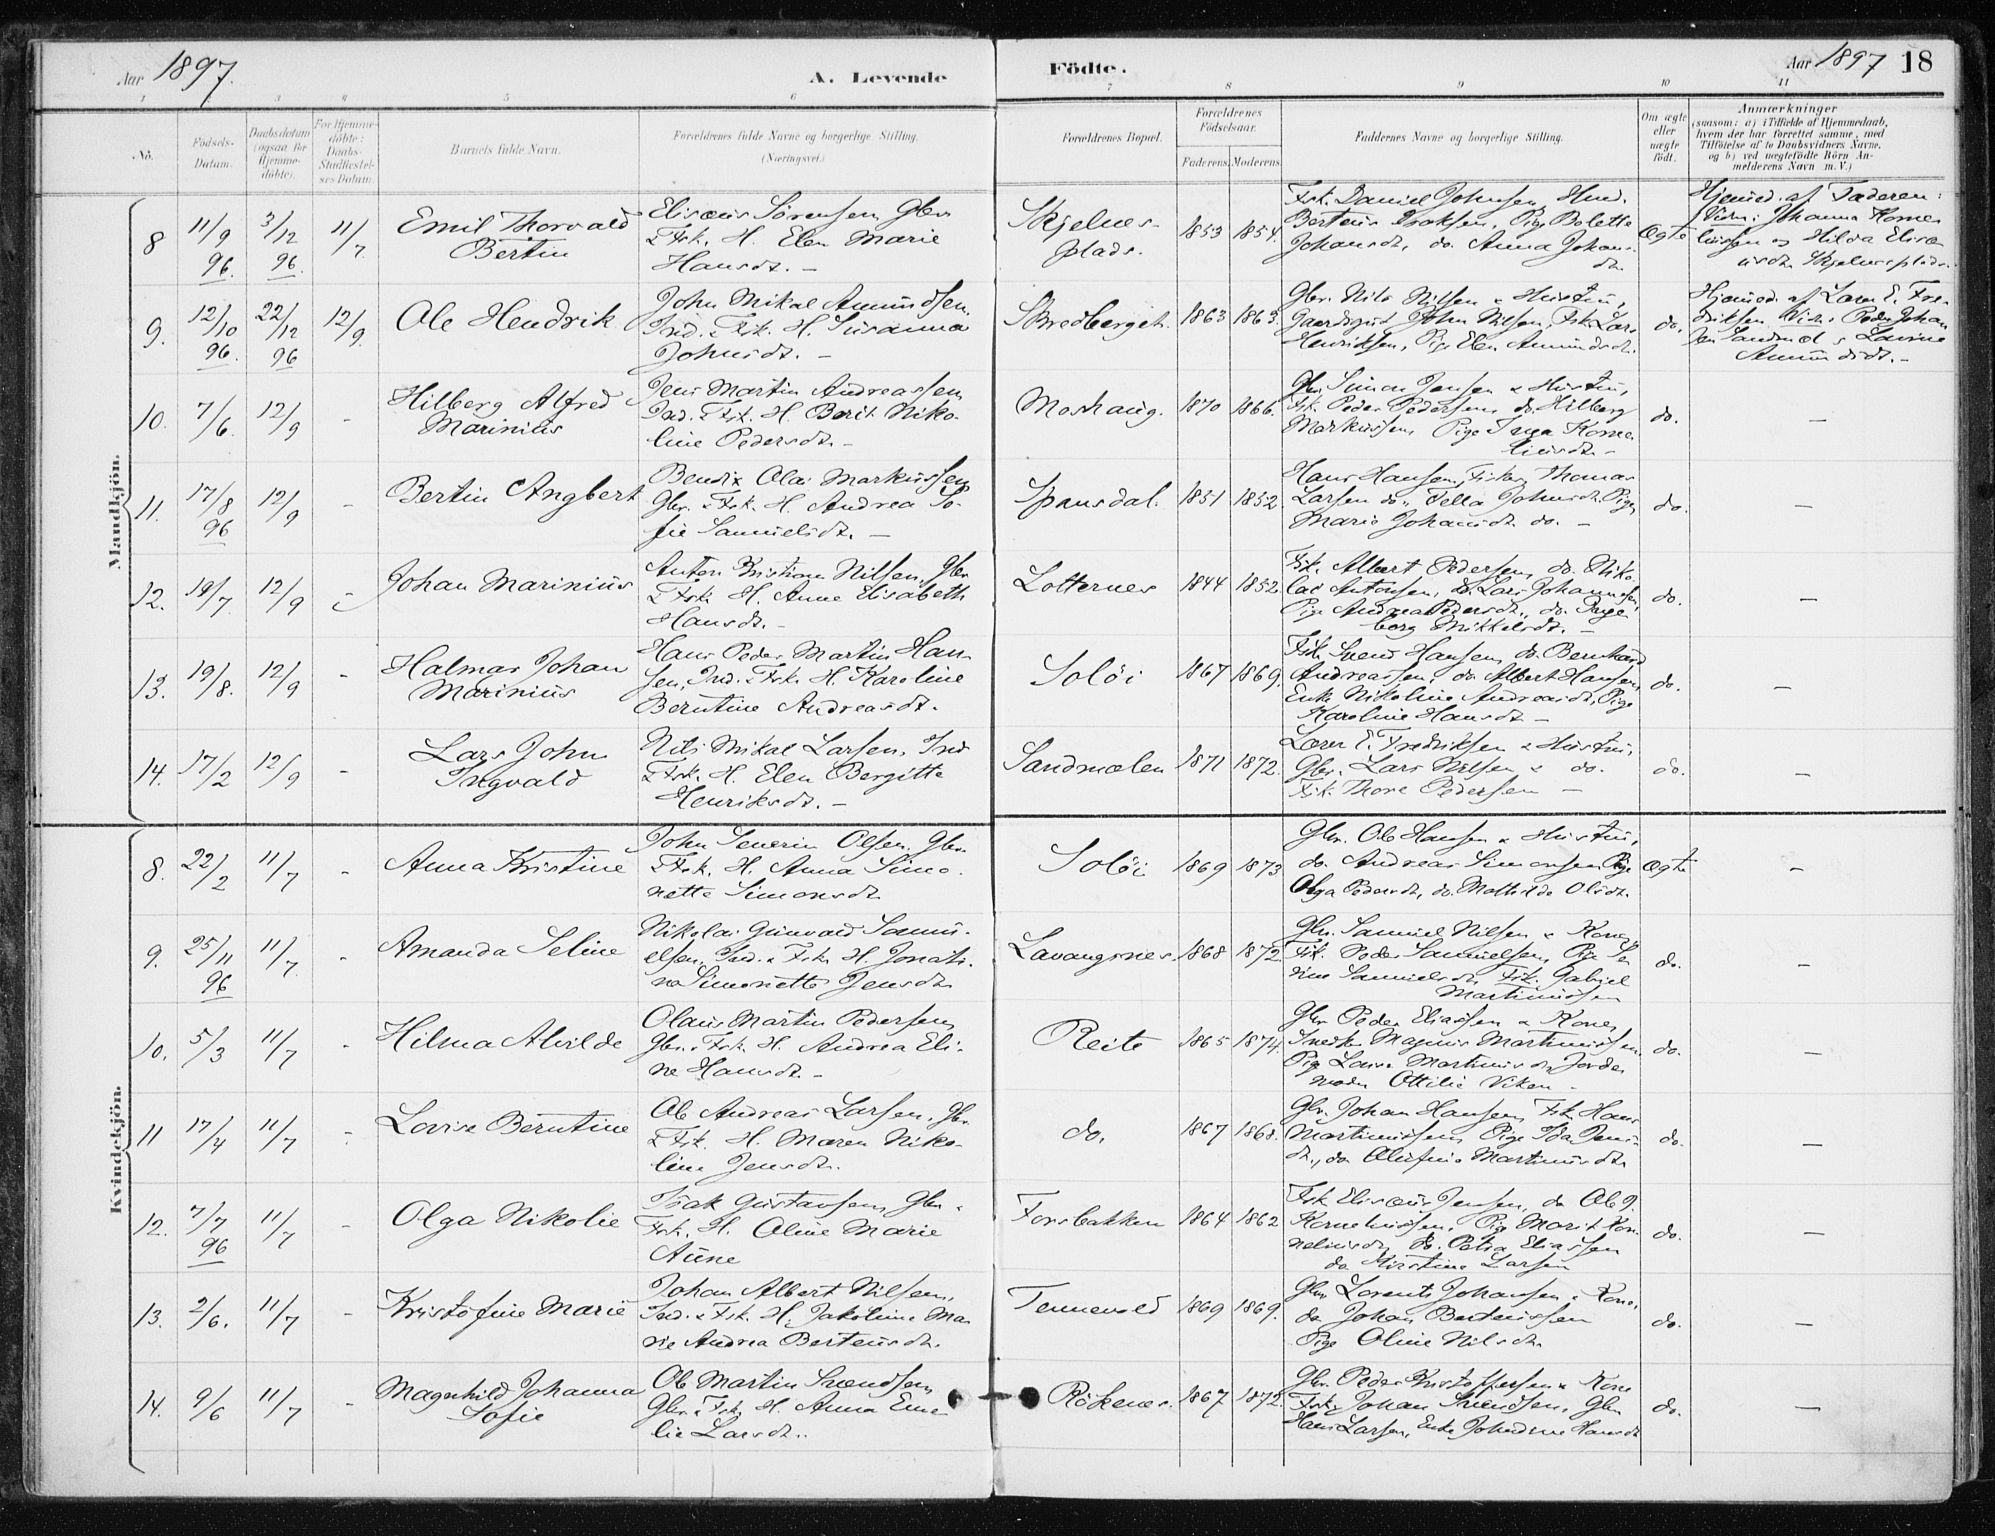 Aar 1897.
A. Levende
Födte.
Aar 1897
18
1 2 3 4 5 6 7 8 9 10 11
No.
Födsels-
Datum.
Daabsdatum
(ogsaa for
Hjemme-
döbte).
For Hjemme-
döbte:
Daabs-
Stadfæstel-
ses Datum.
Barnets fulde Navn.
Forældrenes fulde Navne og borgerlige Stilling.
(Næringsvei.)
Forældrenes Bopæl.
Forældrenes
Födselsaar.
Faderens. Moderens.
Faddernes Navne og borgerlige Stilling.
Om ægte
eller
uægte
födt.
Anmærkninger
(saasom: a) i Tilfælde af Hjemmedaab,
hvem der har forrettet samme, med
Tilföielse af to Daabsvidners Navne,
og b) ved uægtefödte Börn An-
melderens Navn m. V.)
Mandkjön.
8 11/9 96. 3/12 96. 11/7.
Emil Thorvald
Bertin
Elisæus Sörensen, Gbr.
& Fsk. H. Elen Marie
Hansdt. –
Skjelnes-
plads.
1853 1854.
Fsk. Daniel Johnsen,
Johansdt., do. Anna Johans-
dt.
Ægte
Hjemmed. af Faderen:
Vidn: Johanna Korne-
liussen og Hilda Elisæ-
usdt. Skjelnesplads.
9. 12/10 96. 22/12 96 12/9.
Ole Hendrik
John Mikal Amundsen,
Ind. & Fsk. H. Susanna
Johnsdt. –
Skredberget.
1863 1863.
Gbr. Nils Nilsen & Hustru,
Gaardsgut Johan Nilsen, Fsk. Lars
Henriksen, Pige Elen Amundsdt.
do.
Hjemmed. af Lærer E. Fre-
driksen Vidn: Peder Johan
Amundsdt. –
10. 7/6. 12/9 -
Hilberg Alfred
Marinius
Jens Martin Andreassen,
Ind. & Fsk. H. Berit Niko-
line Pedersdt. –
Moshaug.
1870 1866.
Gbr. Simon Jensen & Hustru,
Fsk. Peder Pedersen, do. Hilberg
Markussen, Pige Inga Korne-
liusdt. –
do.
–
11. 17/8 96 12/9 -
Bertin Angbert
Bendix Olai Markussen,
Gbr. & Fsk. H. Andrea So-
fie Samuelsdt. –
Spansdal.
1851 1852.
Hans Hansen, Fisker, Thomas
Larsen do., Pella Johnsdt. Pige,
Marie Johansdt. do. –
do.
–
12. 19/7. 12/9 -
Johan Marinius
Anton Kristian Nilsen, Gbr.
& Fsk. H. Anne Elisabeth
Hansdt. –
Lotternes
1844 1852
Fsk. Albert Pedersen, do. Niko-
lai Antonsen, do. Lars Johannesen,
Pige Andrea Pedersdt., do. Inge-
borg Mikkelsdt. –
do.
–
13. 19/8. 12/9 -
Halmar Johan
Marinius
Hans Peder Martin Han-
sen, Ind. & Fsk. H. Karoline
Berntine Andreasdt.
Solöi
1867 1869.
Fsk. Svend Hansen, do. Bernhard
Andreassen, do. Albert Hansen,
Enke Nikoline Andreasdt., Pige
Karoline Hansdt –
do.
–
14. 17/2 12/9 -
Lars John
Ingvald
Nils Mikal Larsen, Ind
& Fsk. H. Elen Bergitte
Henriksdt. –
Sandmælen
1871 1872.
Lærer E. Fredriksen & Hustru,
Gbr. Lars Nilsen & do.
Fsk. Thore Pedersen –
do.
–
Kvindekjön.
8. 22/2 11/7 -
Anna Kristine
John Severin Olsen, Gbr.
& Fsk. H. Anna Simo-
nette Simonsdt.
Solöi
1869 1873
Gbr. Ole Hansen & Hustru,
do. Andreas Simonsen Pige
Olga Pedersdt, do. Mathilde Olsdt.
Ægte
–
9. 25/11 96 11/7 -
Amanda Seline
Nikolai Grünvald Samu-
elsen, Ind. & Fsk. H. Jonati-
na Simonette Jensdt.
Lavangsnes.
1868 1872
Gbr. Samuel Nilsen & Kone,
Fsk. Peder Samuelsen, Pige Se-
rine Samuelsdt, Fsk. Gabriel
Martinussen
do.
–
10. 5/3 11/7 -
Hilma Alvilde
Olaus Martin Pedersen,
Gbr. & Fsk. H. Andrea Eli-
ne Hansdt. –
Reite
1865 1874.
Gbr. Peder Eliassen & Kone,
Snedker Magnus Martinussen,
Pige Martinusdt, Jorde-
moder Ottilie Viken –
do.
–
11 17/4 11/7 -
Lovise Berntine
Ole Andreas Larsen, Gbr.
& Fsk. H. Maren Niko-
line Jensdt.
do.
1867 1868.
Gbr. Johan Hansen, Fsk. Hans
Martinussen, Pige Ida Jens-
dt., do Martinusdt.
do.
–
12. 7/7 96 11/7 -
Olga Nikolie
Isak Gustavsen, Gbr. &
Fsk. H. Oline Marie
Aune
Forsbakken
1864 1862
Fsk. Elisæus Jensen, do Ole J.
Korneliussen, Pige Marit Kor-
neliusdt, do. Petra Eliassen
do Kirstine Larsen
do.
–
13. 2/6. 11/7 -
Kristofine Marie
Johan Albert Nilsen,
Ind. & Fsk. H. Jakobine Ma-
rie Andrea Berteusdt.
Tennevold
1869 1869.
Gbr. Lorents Johansen & Kone,
do Johan Berteussen
Pige Oline Nilsdt.
do.
–
14. 9/6 11/7 -
Magnhild Johanna
Sofie
Ole Martin Svendsen,
Gbr. & Fsk. H. Anna Eme-
lie Larsdt.
Rökenes.
1867 1872.
Gbr. Peder Kristoffersen & Kone
Fsk. Johan Svendsen, Gbr.
Hans Larsen, Enke Hansdt
do.
–